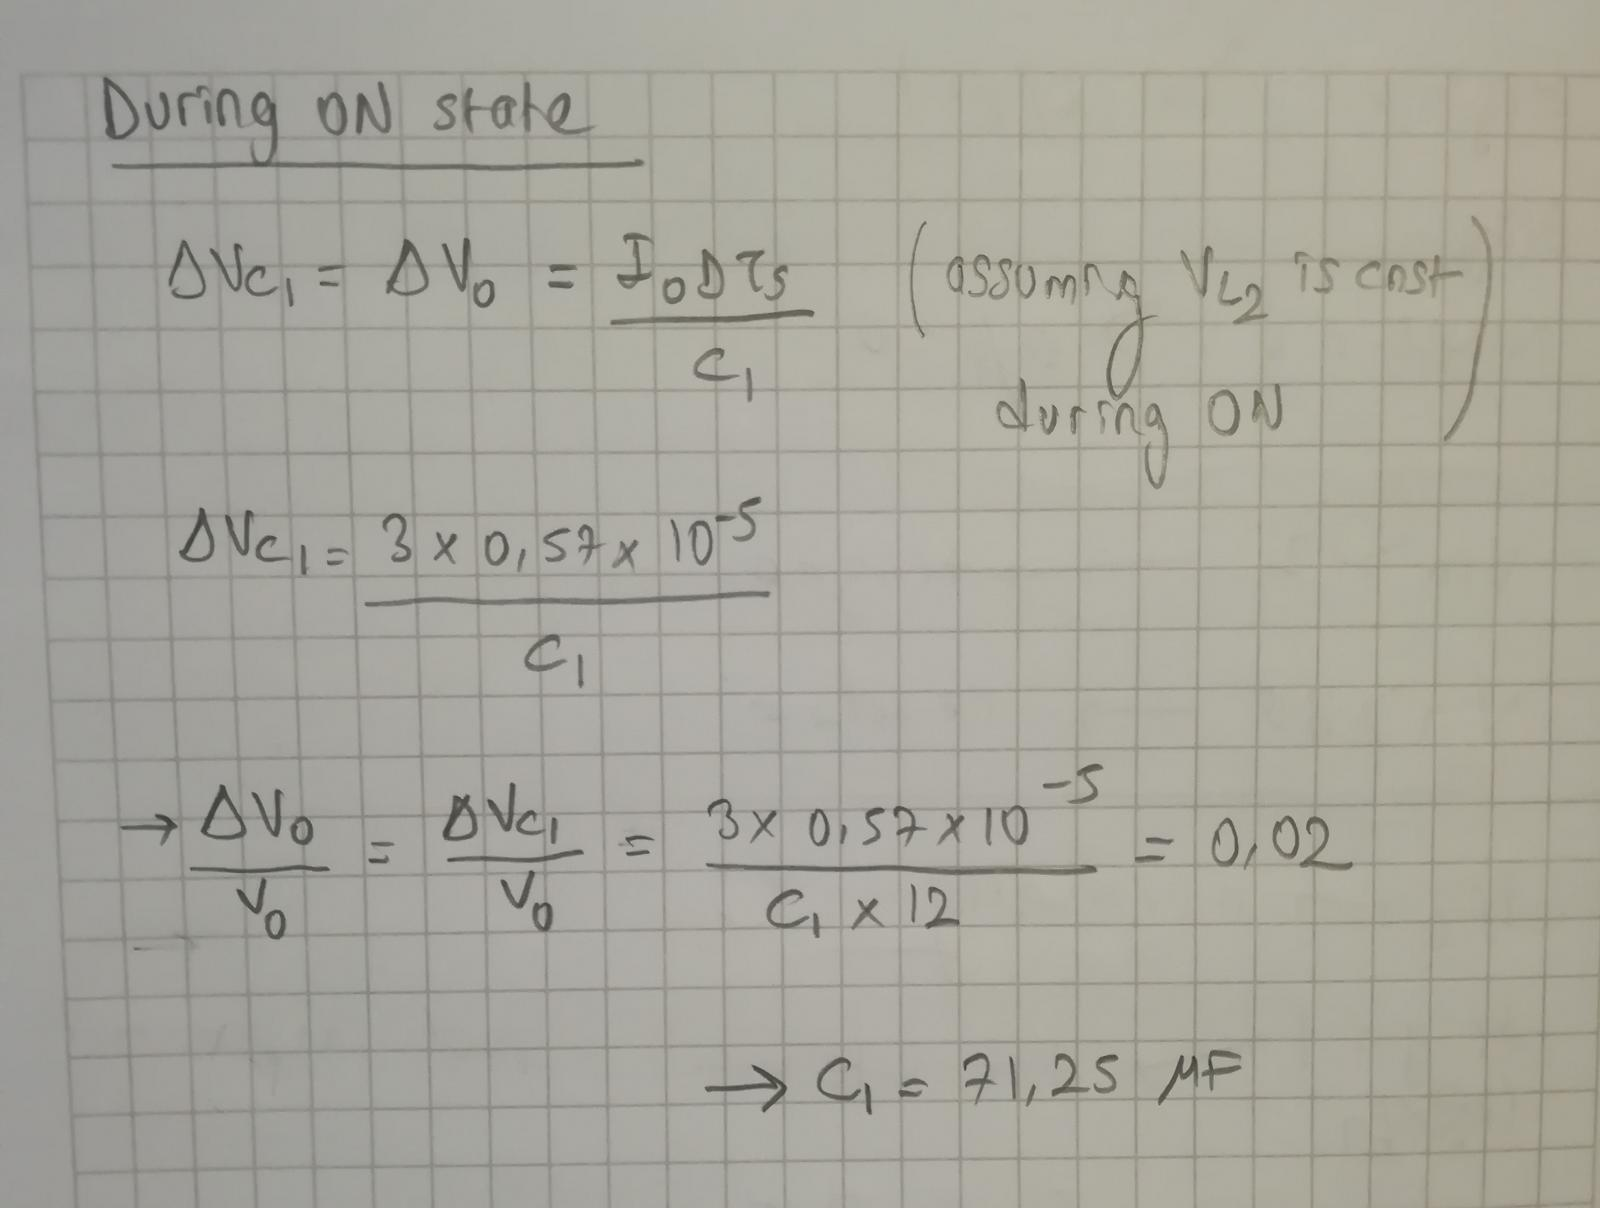 During ON state
ΔVc₁ = ΔV₀ = I₀DTs / C₁ (assuming VL₂ is cnst
during ON)
ΔVc₁ = 3 x 0,57 x 10⁻⁵ / C₁
→ ΔV₀ / V₀ = ΔVc₁ / V₀ = 3 x 0,57 x 10⁻⁵ / C₁ x 12 = 0,02
→ C₁ = 71,25 μF